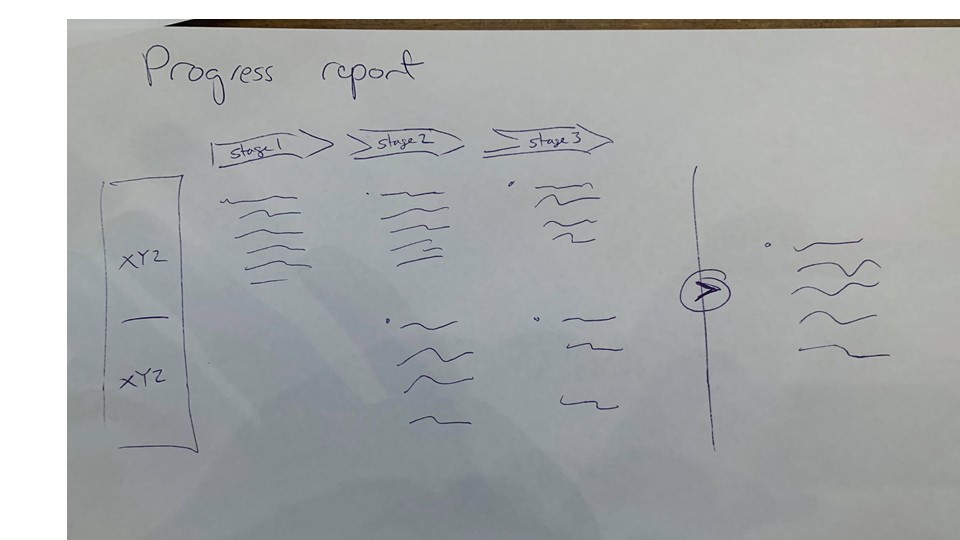 Progress report
stage 1
stage 2
stage 3
XYZ
XYZ